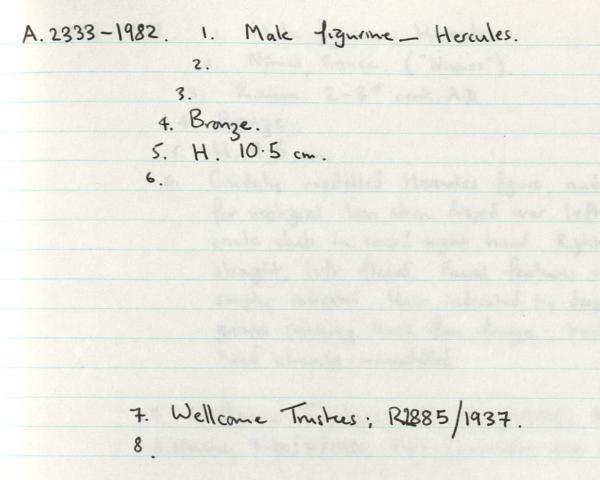 A.2333-1982. 1. Male figurine - Hercules.
2.
3.
4. Bronze.
5. H. 10.5 cm.
6.
7. Wellcome Trustees; R2885/1937.
8.